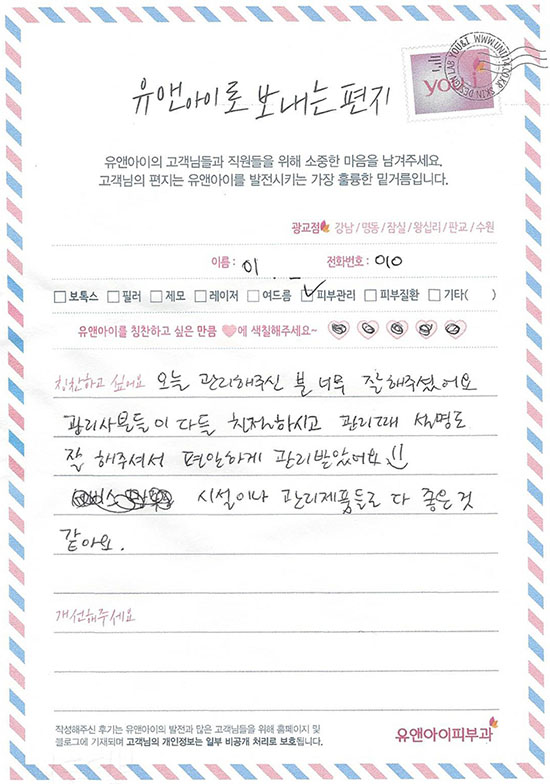 SKIN DESIGN LAB YOU&I WWW.UNI114.CO.KR
you
유앤아이로 보내는 편지
유앤아이의 고객님들과 직원들을 위해 소중한 마음을 남겨주세요.
고객님의 편지는 유앤아이를 발전시키는 가장 훌륭한 밑거름입니다.
광교점 강남 / 명동 / 잠실 / 왕십리 / 판교 / 수원
이름 : 이 . - 전화번호 : 010
보톡스 필러 제모 레이저 여드름 피부관리 피부질환 기타( )
유앤아이를 칭찬하고 싶은 만큼 에 색칠해주세요~
칭찬하고 싶어요 오늘 관리해주신 분 너무 잘해주셨어요
관리사분들이 다들 친절하시고 관리때 설명도
잘 해주셔서 편안하게 관리받았어요 !!
시설이나 관리제품들로 다 좋은 것
같아요.
개선해주세요
작성해주신 후기는 유앤아이의 발전과 많은 고객님들을 위해 홈페이지 및
블로그에 기재되며 고객님의 개인정보는 일부 비공개 처리로 보호됩니다.
유앤아이피부과